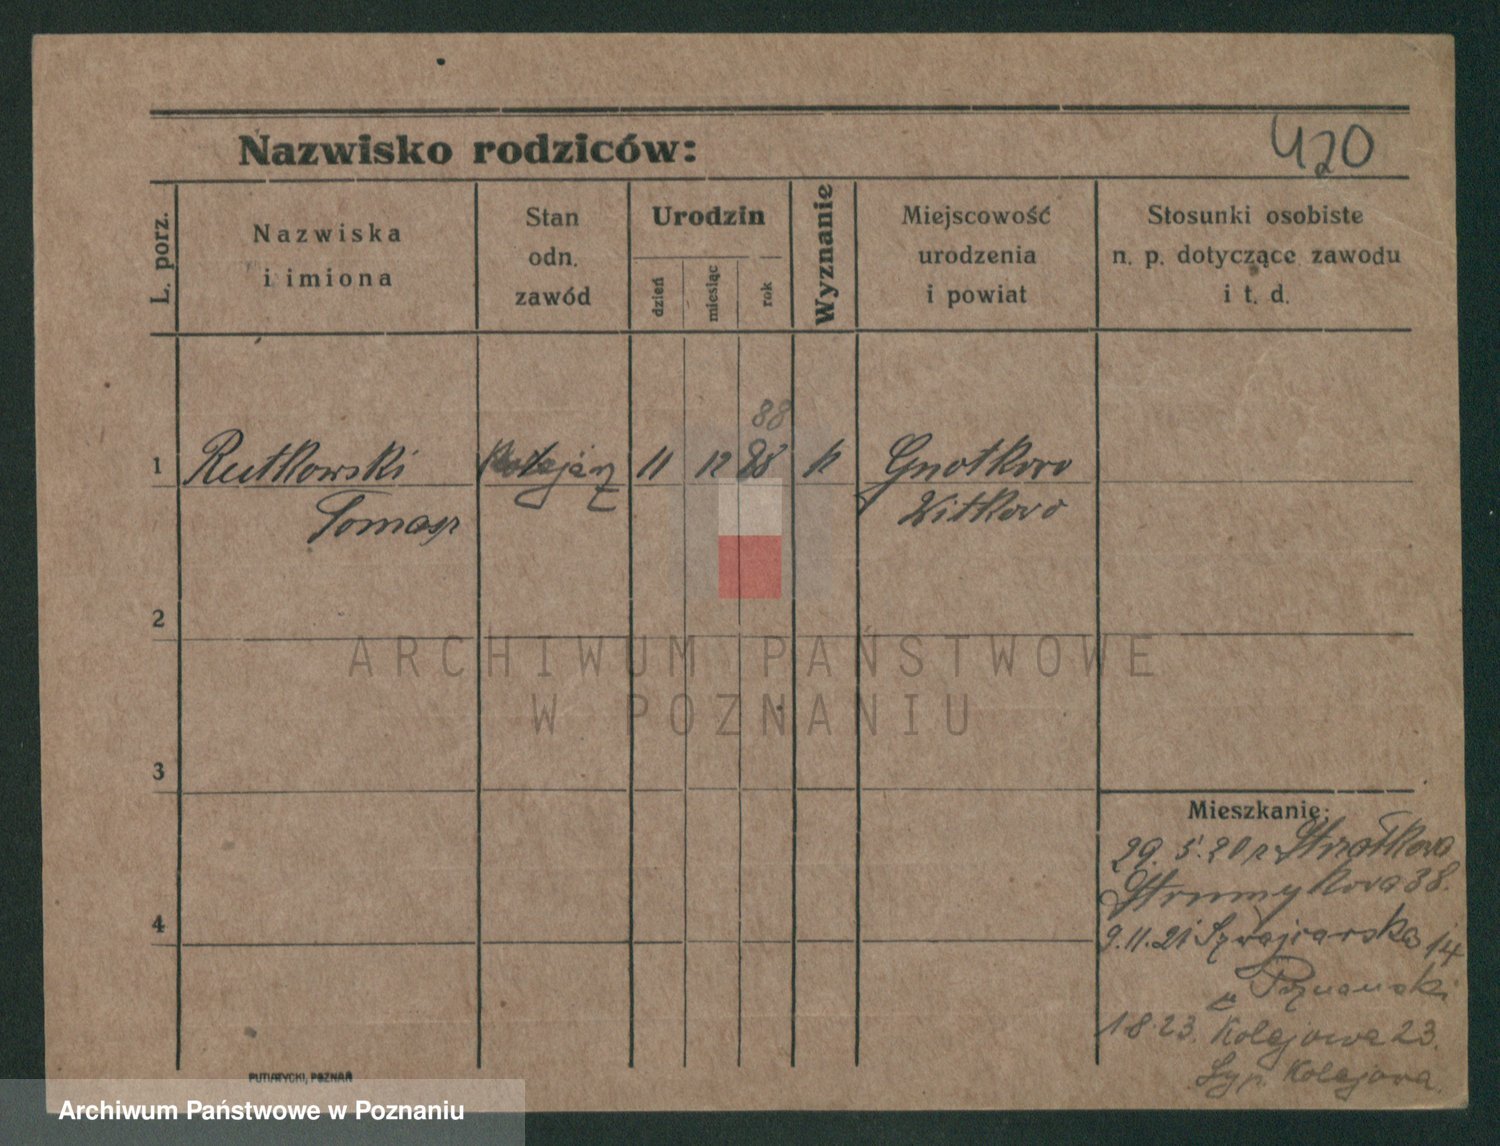 Nazwisko rodziców:
420
L. porz.
Nazwiska
i imiona
Stan
odn.
zawód
Urodzin
dzień
miesiąc
rok
Wyznanie
Miejscowość
urodzenia
i powiat
Stosunki osobiste
n. p. dotyczące zawodu
i t. d.
88
1 Rutkowski 11 12 88 k
Tomasz Witkowo
2
ARCHIWUM PAŃSTWOWE
W POZNANIU
3
Mieszkanie:
29. 5. 20 z Strzałkowa
Strumykowa 38.
4
9.11.21 Szwajcarska 14
Poznański
1.8.23. Kolejowa 23.
Kolejowa.
PUTIATYCKI, POZNAŃ
Archiwum Państwowe w Poznaniu